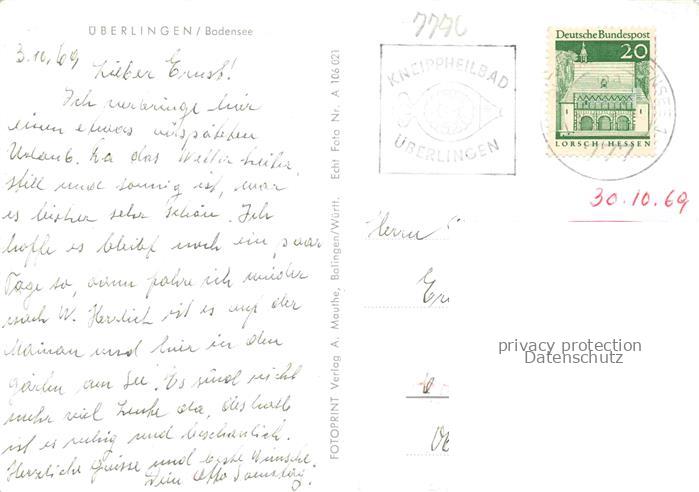 ÜBERLINGEN / Bodensee
3.10.69
Lieber Ernst!
Ich verbringe hier
einen etwas verspäteten
Urlaub. Da das Wetter heiter,
still und sonnig ist, war
es bisher sehr schön. Ich
hoffe es bleibt noch ein paar
Tage so, dann fahre ich wieder
nach W. Herrlich ist es auf der
Mainau und hier in den
Gärten am See. Es sind nicht
mehr viel Leute da, deshalb
ist es ruhig und beschaulich.
Herzliche Grüsse und beste Wünsche
Dein Otto
FOTOPRINT Verlag A. Mauthe, Balingen/Württ. Echt Foto Nr. A 106 021
KNEIPPHEILBAD
ÜBERLINGEN
Deutsche Bundespost
20
LORSCH / HESSEN
30.10.69
Herrn
privacy protection
Datenschutz